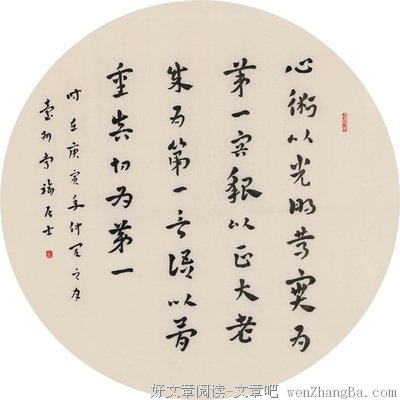 心術以光明笃實为
第一容貌以正大老
成为第一言語以简
重真切为第一
时在庚寅年仲夏之月
居士
好文章阅读-文章吧 wenZhangBa.com